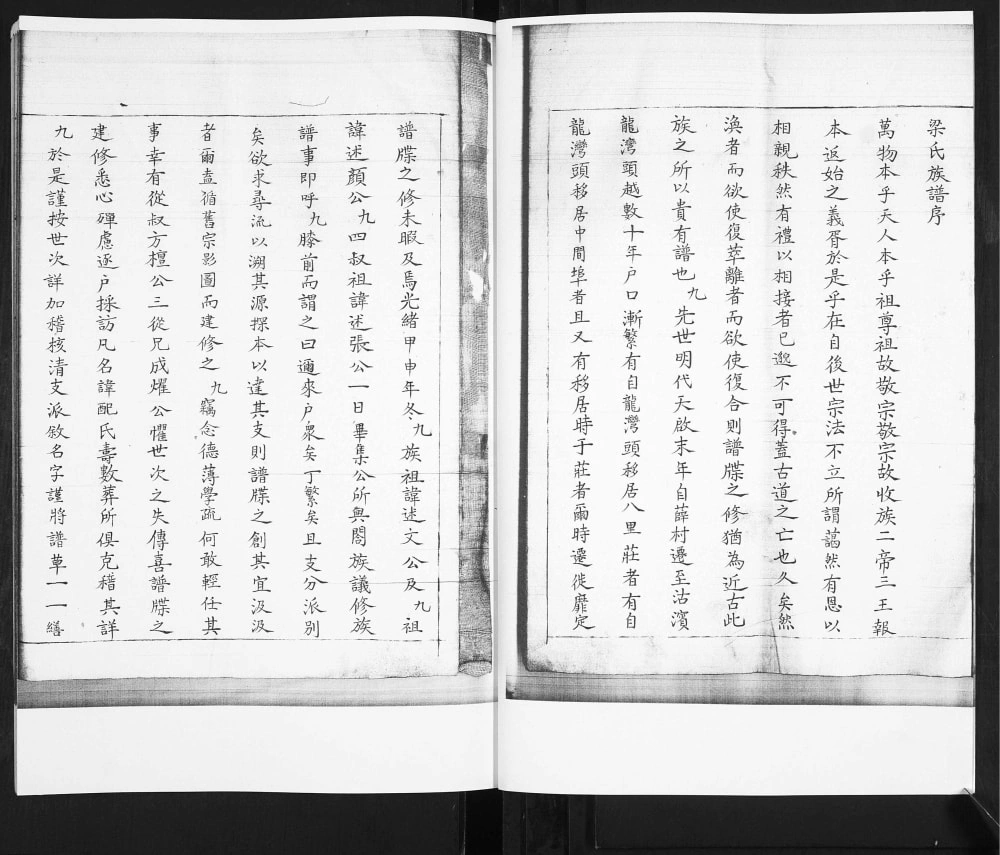 梁氏族譜序
萬物本乎天人本乎祖尊祖故敬宗敬宗故收族二帝三王報
本返始之義胥於是乎在自後世宗法不立所謂藹然有恩以
相親秩然有禮以相接者已邈不可得蓋古道之亡也久矣然
渙者而欲使復萃離者而欲使復合則譜牒之修猶為近古此
族之所以貴有譜也九先世明代天啟末年自薛村遷至沽濱
龍灣頭越數十年户口漸繁有自龍灣頭移居八里莊者有自
龍灣頭移居中間埠者且又有移居時于莊者爾時遷徙靡定
譜牒之修未暇及焉光緒甲申年冬九族祖諱述文公及九祖
諱述顏公九四叔祖諱述張公一日畢集公所與閤族議修族
譜事即呼九膝前而謂之曰邇來户衆矣丁繁矣且支分派別
矣欲求尋流以溯其源探本以達其支則譜牒之創其宜汲汲
者爾盍循舊宗影圖而建修之九竊念德薄學疏何敢輕任其
事幸有從叔方檀公三從兄成燿公懼世次之失傳喜譜牒之
建修悉心殫慮逐户採訪凡名諱配氏壽數葬所俱克稽其詳
九於是謹按世次詳加稽核清支派敘名字謹將譜草一一繕